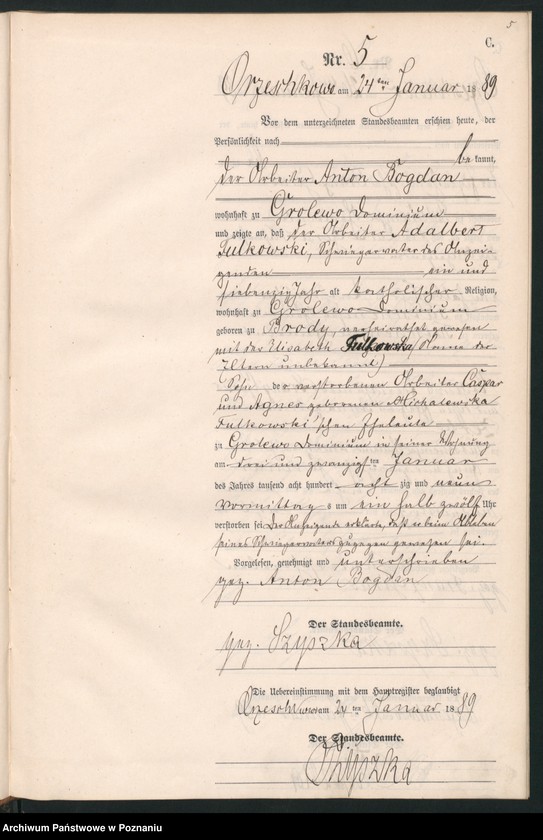 5
C.
Nr. 5
Orzeschkowo am 24ten Januar 1889
Vor dem unterzeichneten Standesbeamten erschien heute, der
Persönlichkeit nach
bekannt,
der Arbeiter Anton Bogdan
wohnhaft zu Grolewo Dominium
und zeigte an, daß der Arbeiter Adalbert
Fulkowski, Schwiegervater des Anzei-
genden ein und
siebenzig Jahr alt katholischer Religion,
wohnhaft zu Grolewo Dominium
geboren zu Brody, verheirathet gewesen
mit der Elisabeth Fulkowska (Name der
Eltern unbekannt)
Sohn der verstorbenen Arbeiter Caspar
und Agnes geborenen Michalewska
Fulkowski'schen Eheleute
zu Grolewo Dominium in seiner Wohnung
am drei und zwanzigsten Januar
des Jahres tausend acht hundert achtzig und neun
Vormittags um ein halb zwölf Uhr
verstorben sei. Der Anzeigende erklärte, daß er beim Ableben
seines Schwiegervaters zugegen gewesen sei.
Vorgelesen, genehmigt und unterschrieben
gez. Anton Bogdan
Der Standesbeamte.
gez. Szyszka
Die Uebereinstimmung mit dem Hauptregister beglaubigt
Orzeschkowo am 24ten Januar 1889
Der Standesbeamte.
Szyszka
Archiwum Państwowe w Poznaniu